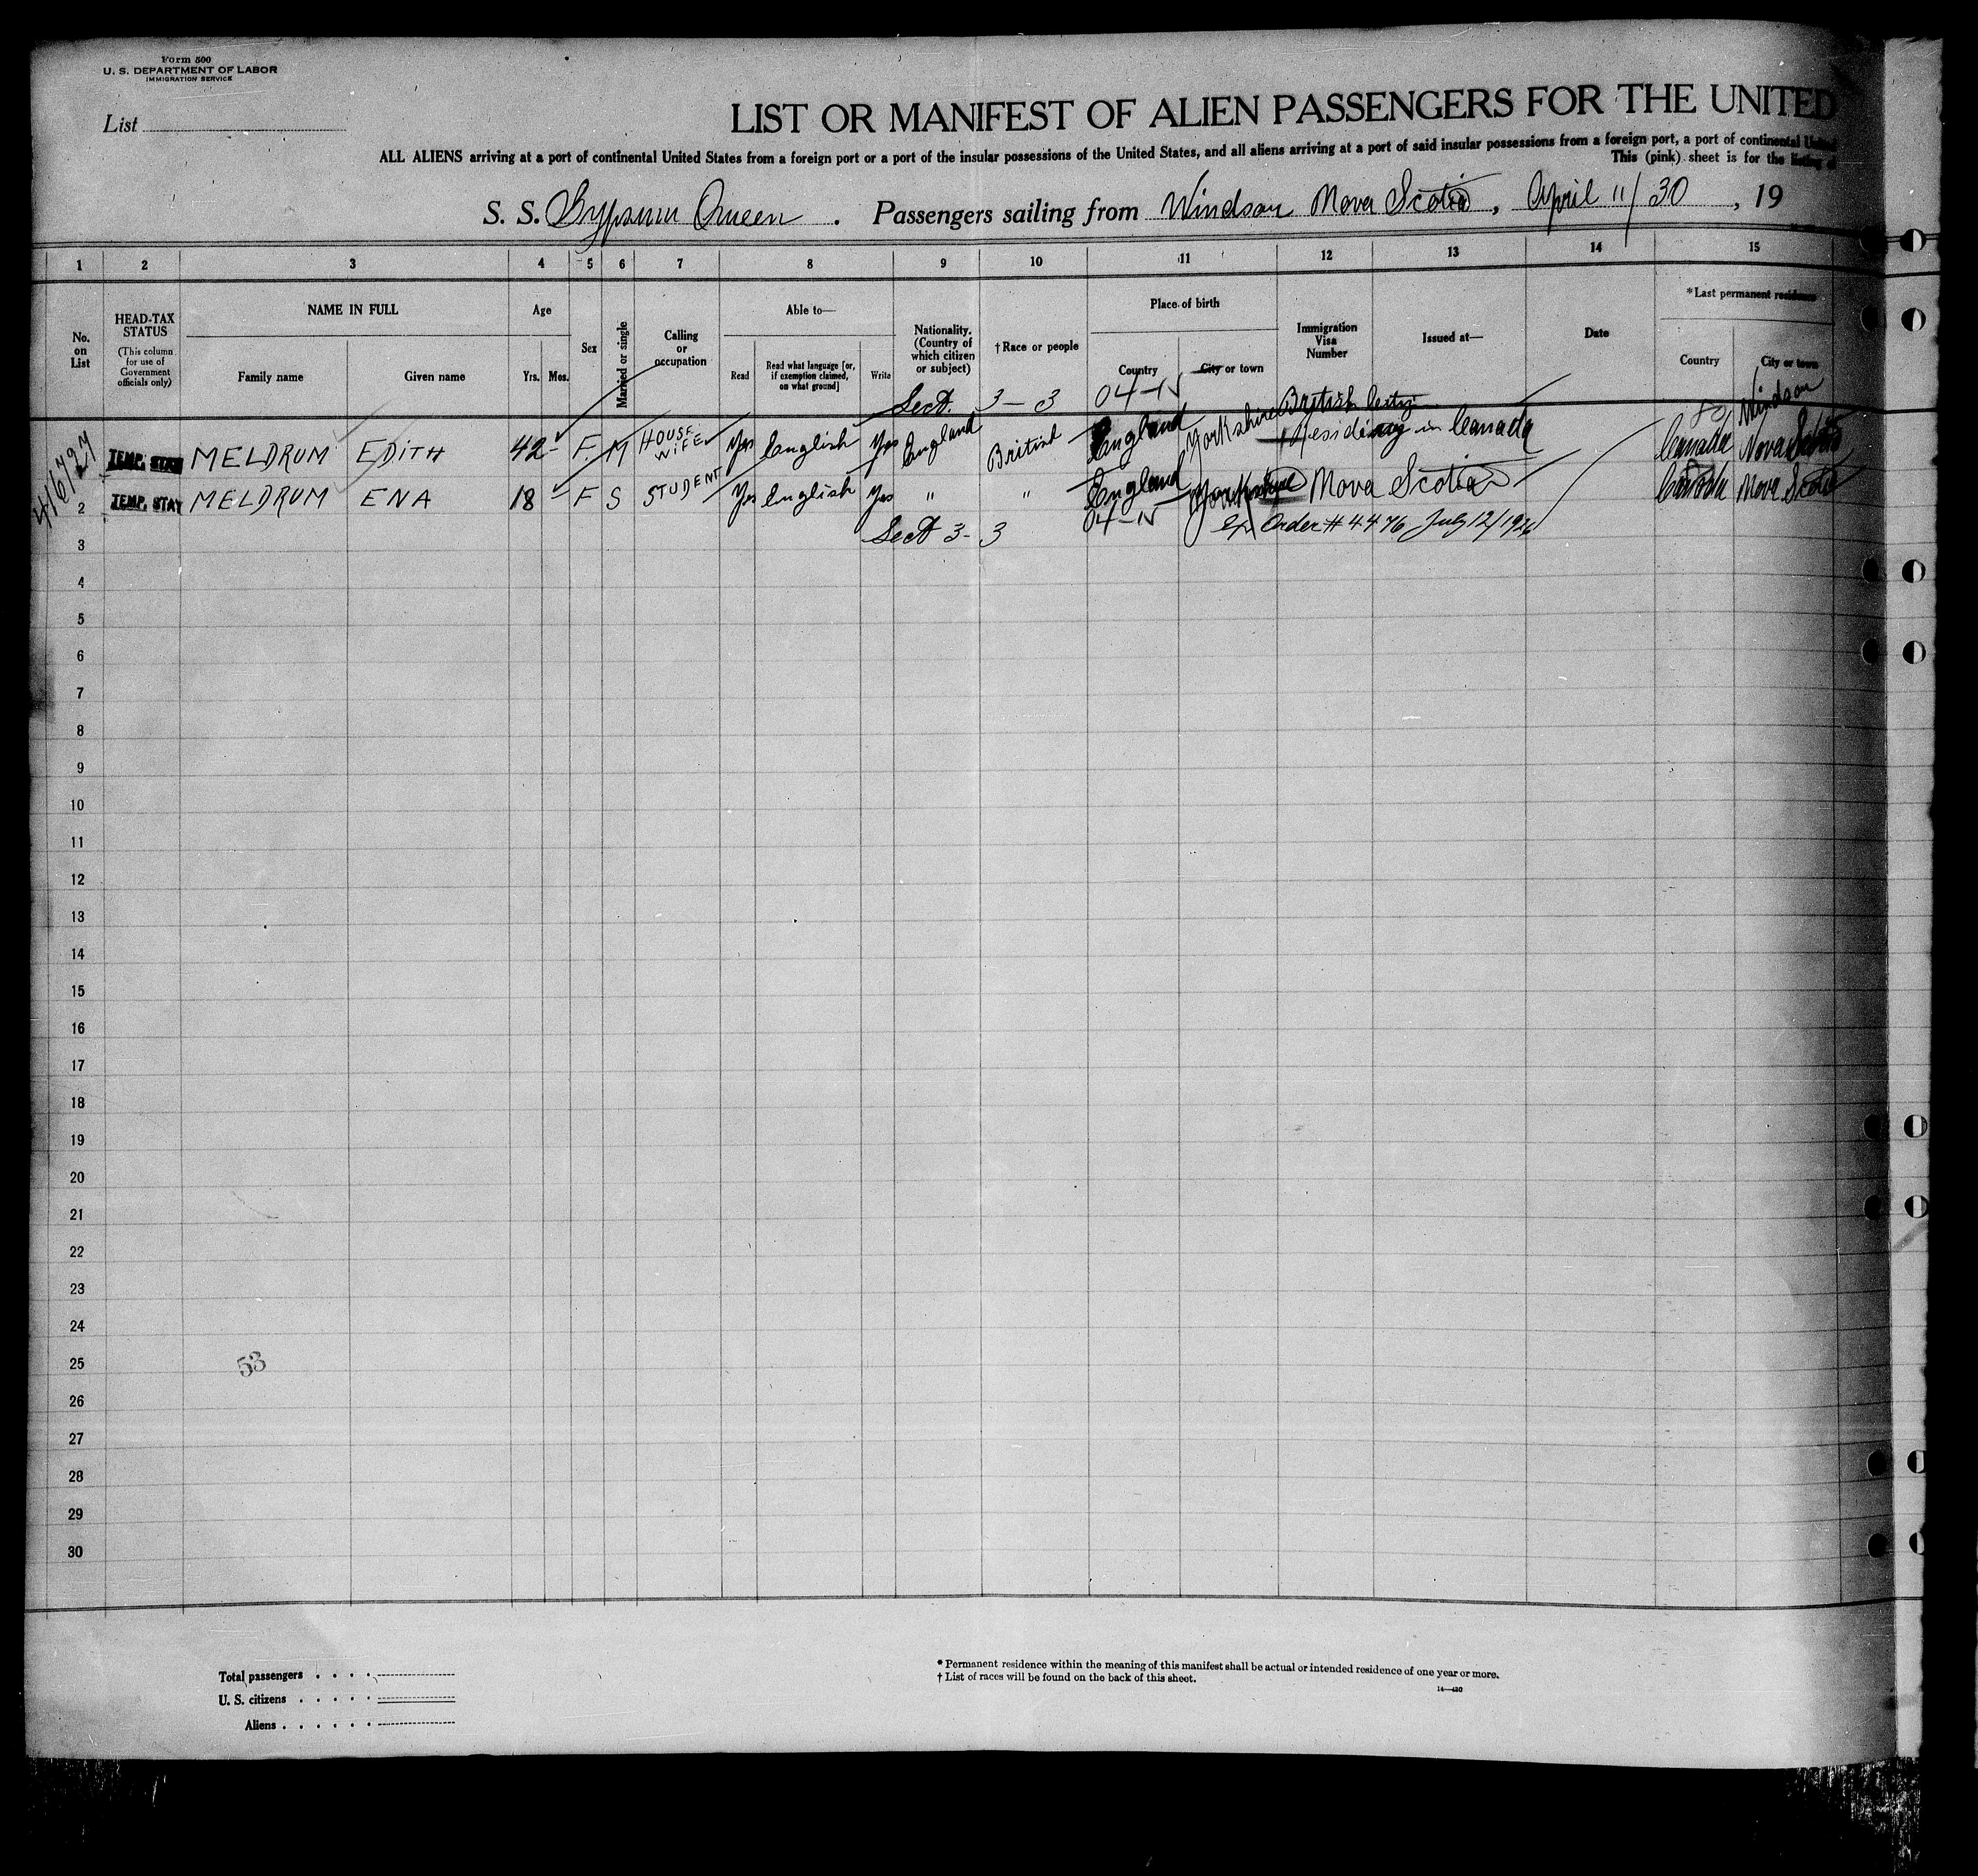 Form 500
U. S. DEPARTMENT OF LABOR
IMMIGRATION SERVICE
List
LIST OR MANIFEST OF ALIEN PASSENGERS FOR THE UNITED
ALL ALIENS arriving at a port of continental United States from a foreign port or a port of the insular possessions of the United States, and all aliens arriving at a port of said insular possessions from a foreign port, a port of continental United
This (pink) sheet is for the listing of
S. S. Gypsum Queen . Passengers sailing from Windsor Nova Scotia, April 11/30, 19
1 2 3 4 5 6 7 8 9 10 11 12 13 14 15
No. on List
HEAD-TAX STATUS
(This column for use of Government officials only)
NAME IN FULL
Family name Given name
Age
Yrs. Mos.
Sex
Married or single
Calling or occupation
Able to—
Read Read what language [or, if exemption claimed, on what ground] Write
Nationality. (Country of which citizen or subject)
† Race or people
Place of birth
Country City or town
Immigration Visa Number
Issued at—
Date
* Last permanent residence
Country City or town
Sect. 3 – 3 04-15 British
80 Windsor
TEMP. STAY MELDRUM EDITH 42 - F M HOUSE WIFE Yes English Yes England British England Yorkshire Residing in Canada Canada Nova Scotia
2 TEMP. STAY MELDRUM ENA 18 - F S STUDENT Yes English Yes " " England Yorkshire Nova Scotia Canada Nova Scotia
3 Sect 3- 3 04-15 Ex Order # 4476 July 12/1926
4
5
6
7
8
9
10
11
12
13
14
15
16
17
18
19
20
21
22
23
24
25 53
26
27
28
29
30
Total passengers . . . .
U. S. citizens . . . . .
Aliens . . . . . .
* Permanent residence within the meaning of this manifest shall be actual or intended residence of one year or more.
† List of races will be found on the back of this sheet.